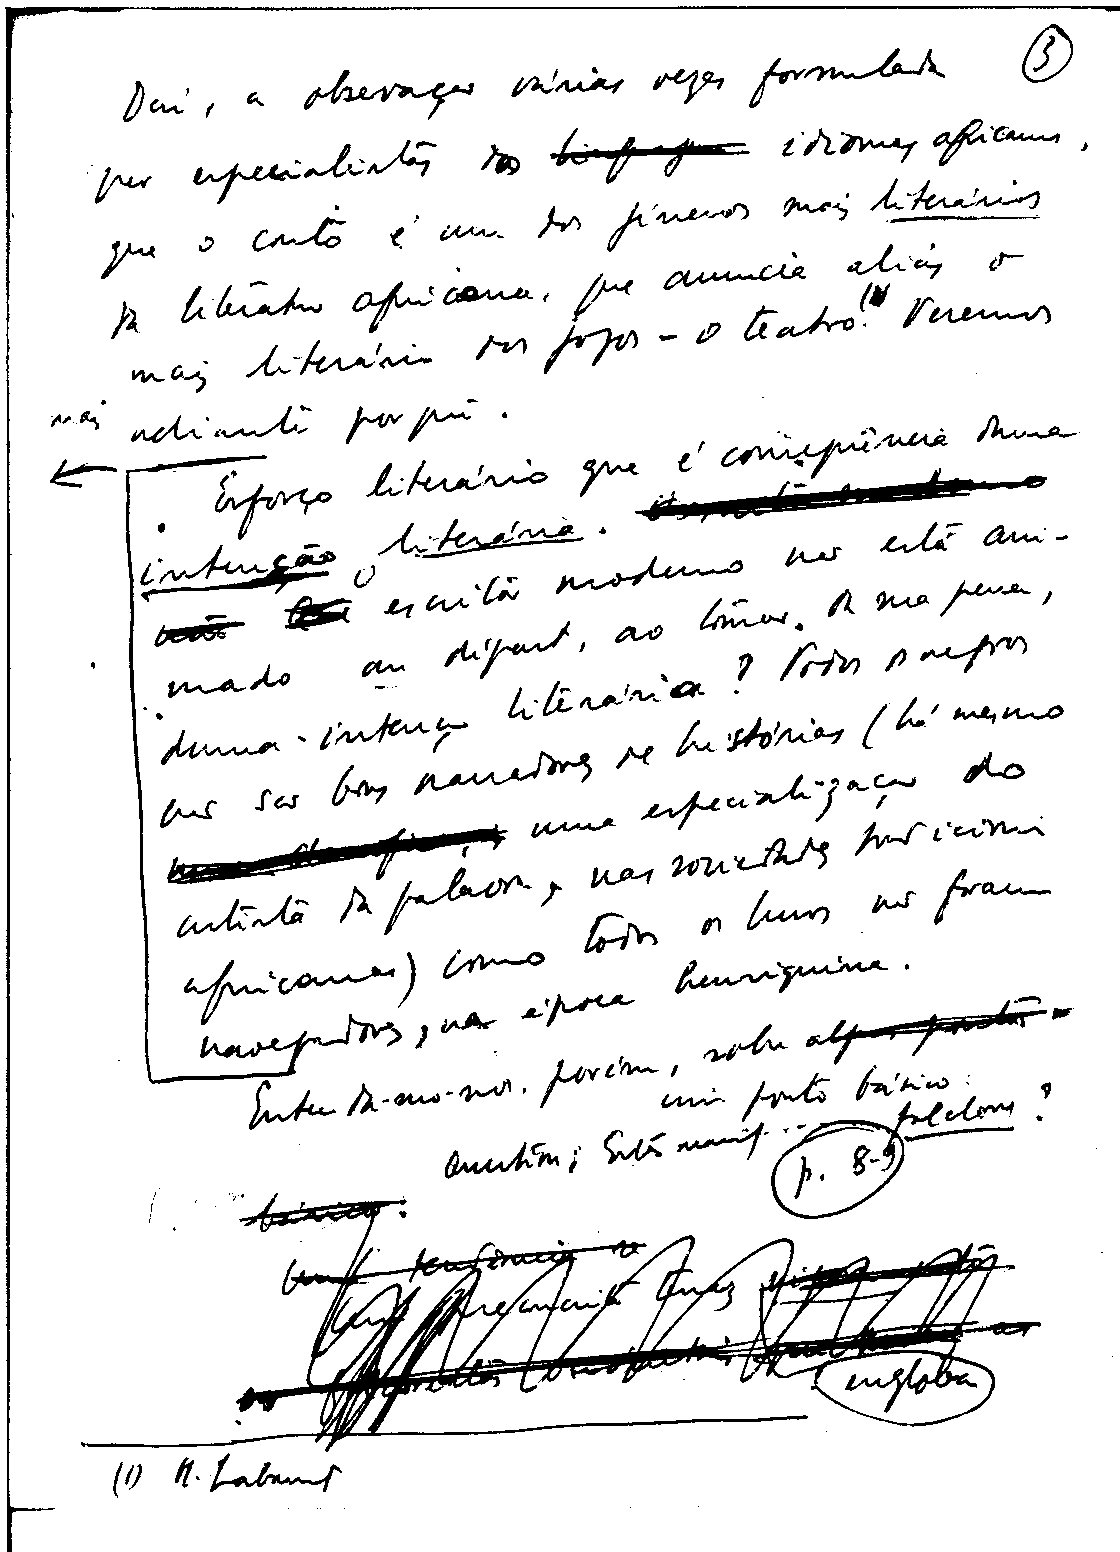 3
Daí, a observação várias vezes formulada
por especialistas dos idiomas africanos,
que o conto é um dos géneros mais literários
da literatura africana, que anuncia aliás o
mais literário dos jogos - o teatro (1). Veremos
mais adiante porquê.
Esforço literário que é consequência duma
intenção literária.
O escritor moderno não está ani-
mado au départ, ao tomar da sua pena,
duma intenção literária? Todos os negros
não são bons narradores de histórias (há mesmo
uma especialização do
artista da palavra, nas sociedades tradicionais
africanas) como todos os lusos não foram
navegadores, na época henriquina.
Entenda-mo-nos. porém, sobre
um ponto básico:
Question: folclore?
p. 8-9
básico:
engloba
(1) H. Labouret